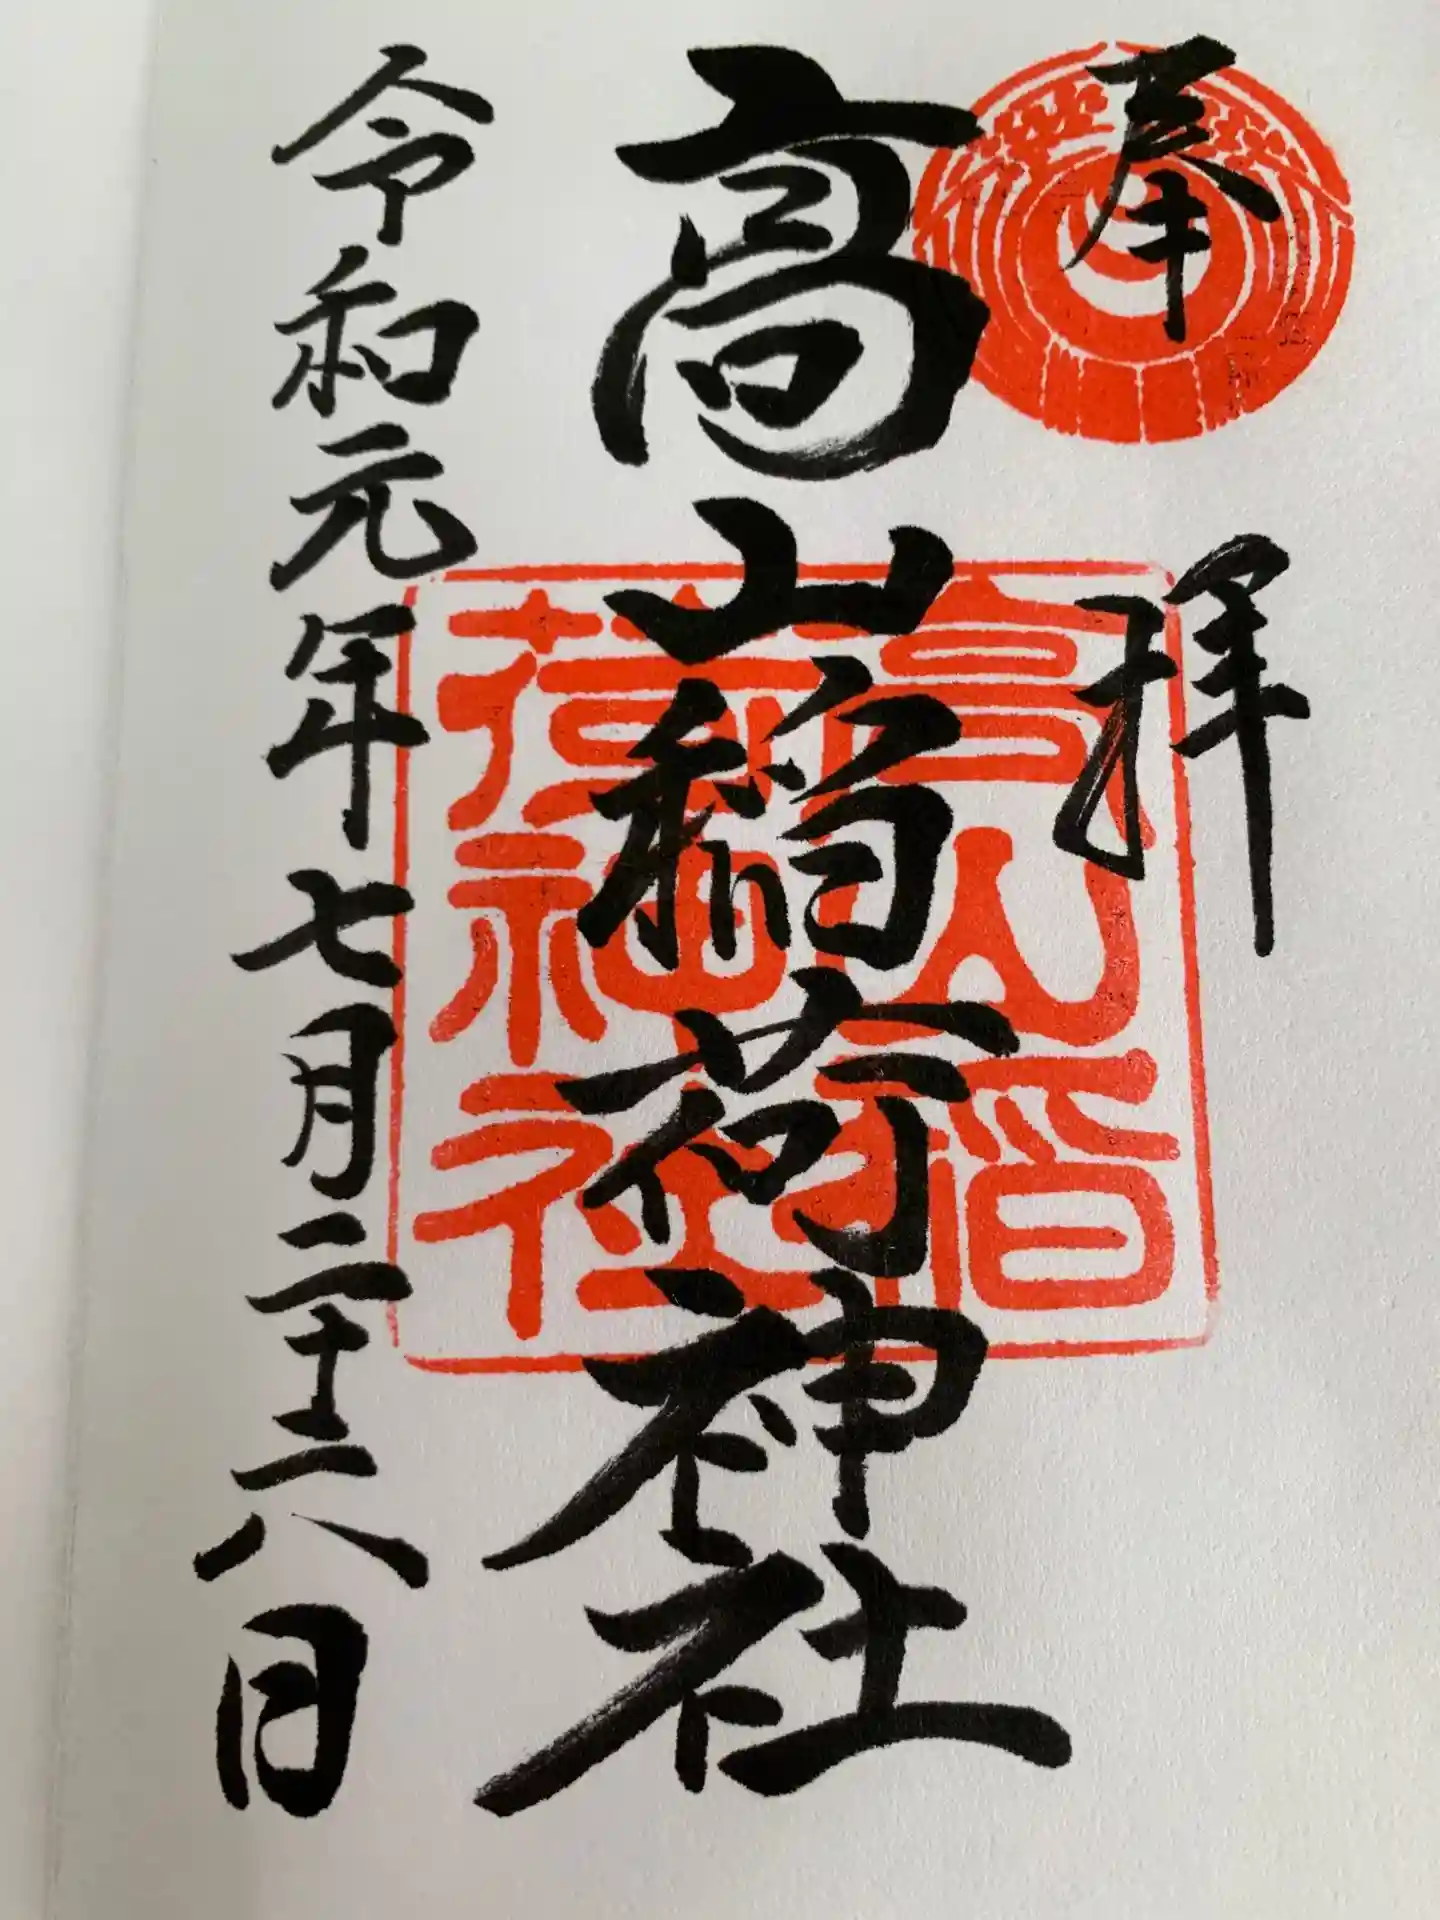 奉拝
高山稲荷神社
令和元年七月二十六日
高山稲
荷神社